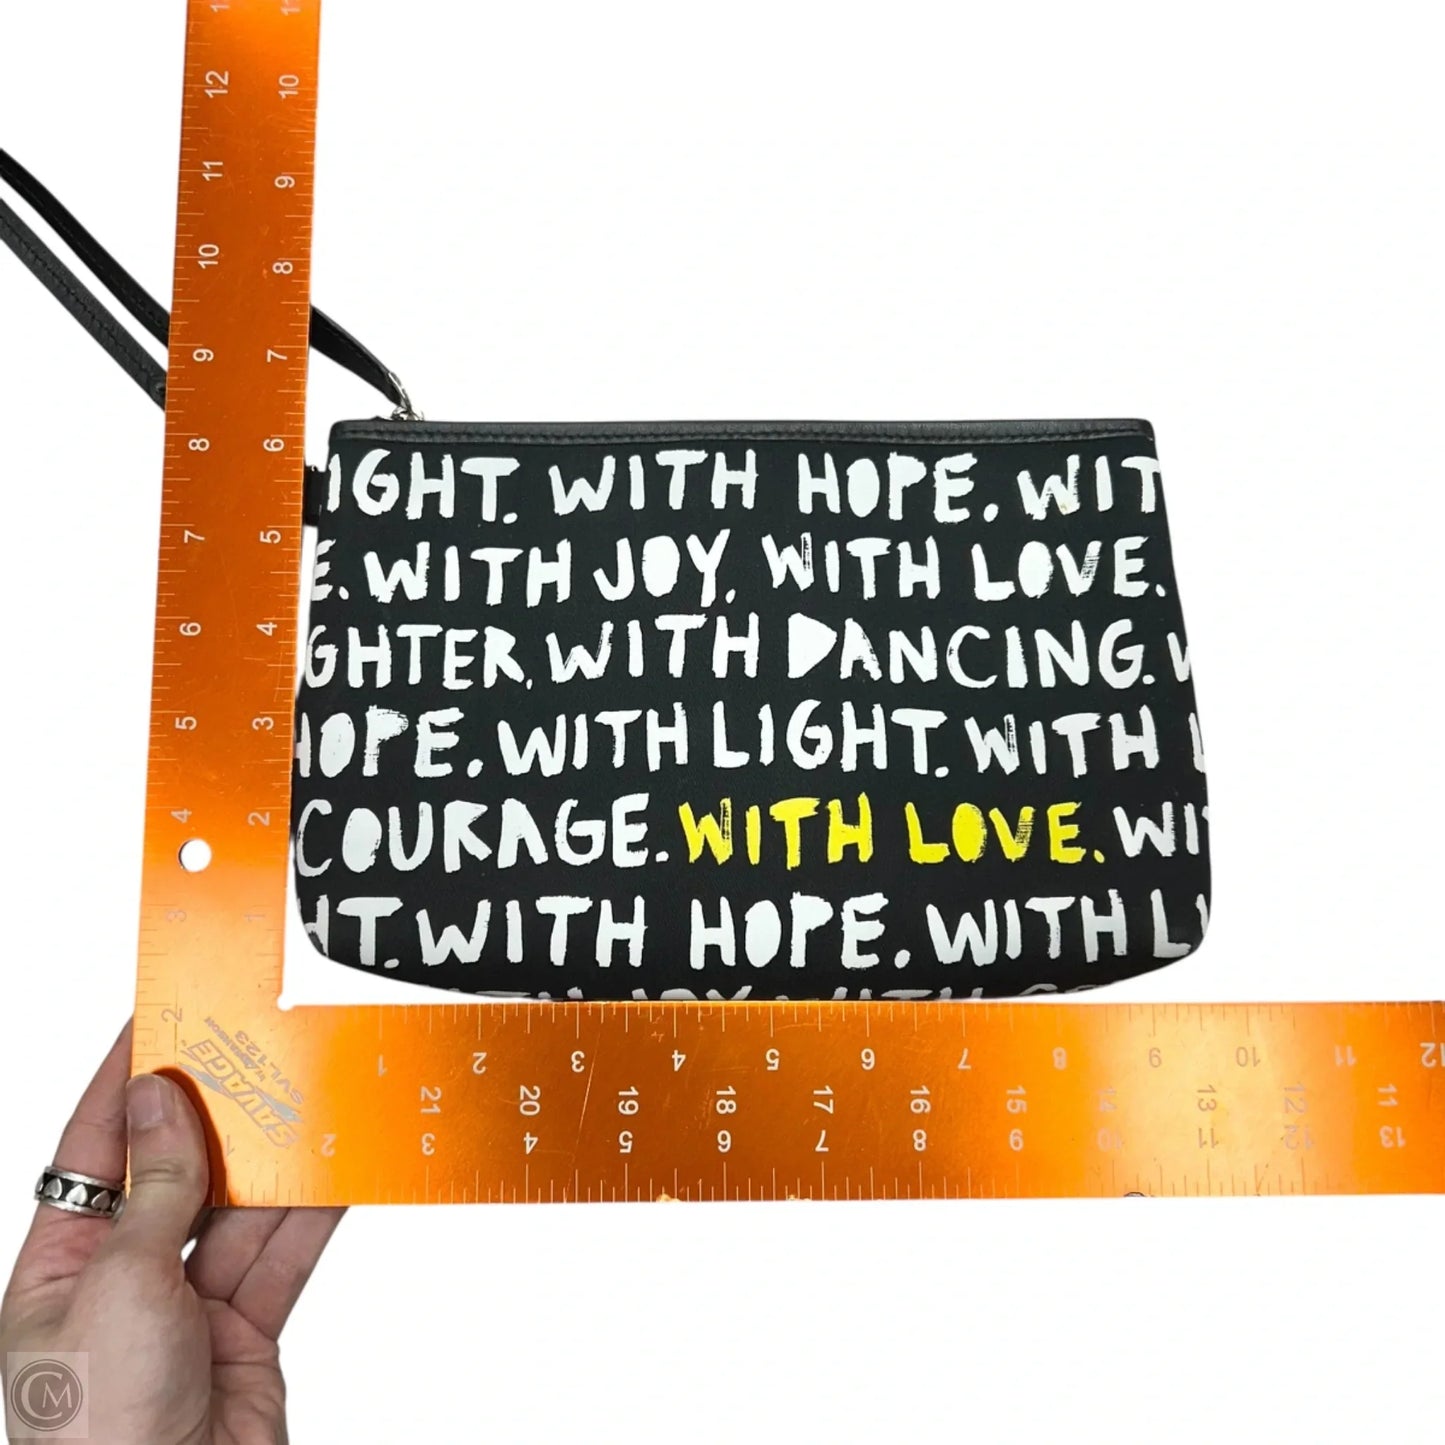 IGHT. WITH HOPE. WIT
E. WITH JOY. WITH LOVE.
GHTER. WITH DANCING. W
HOPE. WITH LIGHT. WITH L
COURAGE. WITH LOVE. WIT
HT. WITH HOPE. WITH LI
JOY. WITH
12 11 10 9 8 7 6 5 4 3 2 1
10 9 8 7 6 5 4 3 2 1
SAVAGE
BY SWANSON
SVL123
1 2 3 4 5 6 7 8 9 10 11 12
21 20 19 18 17 16 15 14 13 12 11
2 3 4 5 6 7 8 9 10 11 12 13
CM